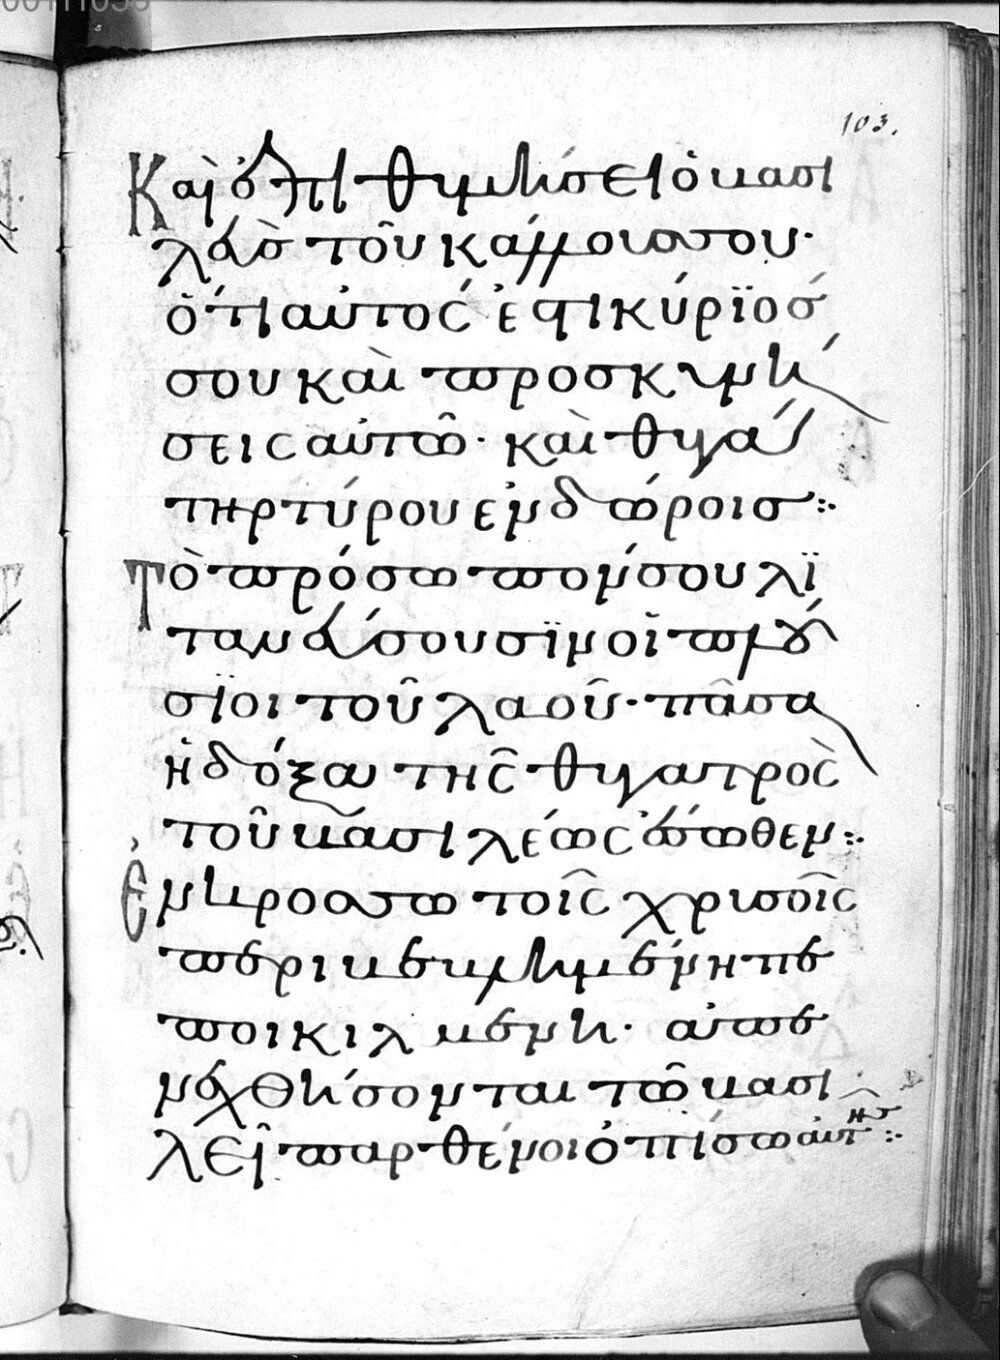 103.
Καὶ ἐπιθυμήσει ὁ βασι
λεὺσ τοῦ κάλλουσ σου·
ὅτι αὐτός ἐστι κύρϊόσ
σου καὶ προσκυνή
σεις αὐτῶ· καὶ θυγά
τηρ τύρου ἐν δώροισ:·
Τὸ πρόσωπόν σου λϊ
τανεύσουσϊν οἱ πλού
σϊοι τοῦ λαοῦ· πᾶσα
ἡ δόξα τῆς θυγατρὸς
τοῦ βασιλέως ἔσωθεν:·
Ἐν κροσσωτοῖς χρυσοῖς
περιβεβλημένη πε
ποικιλμένη· ἀπε
νεχθήσονται τῶ βασι
λεῖ παρθένοι ὀπίσω αὐτῆσ:·